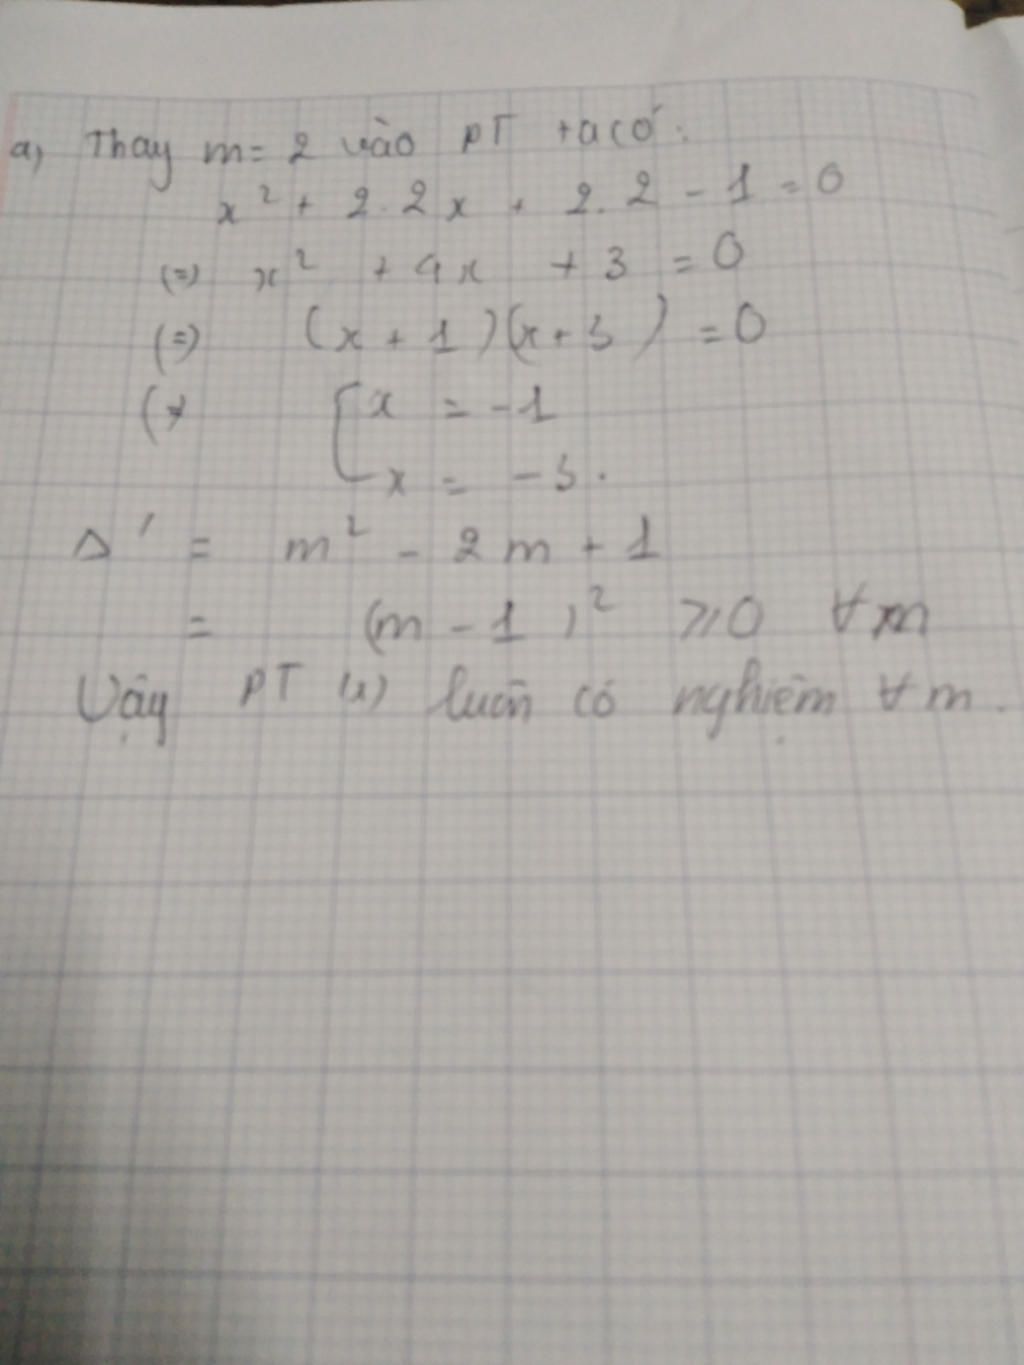 a, Thay m = 2 vào PT ta có:
x² + 2.2x + 2.2 - 1 = 0
(=) x² + 4x + 3 = 0
(=) (x + 1)(x + 3) = 0
(=) [ x = -1
x = -3.
Δ' = m² - 2m + 1
= (m - 1)² ≥ 0 ∀m
Vậy PT (1) luôn có nghiệm ∀m.